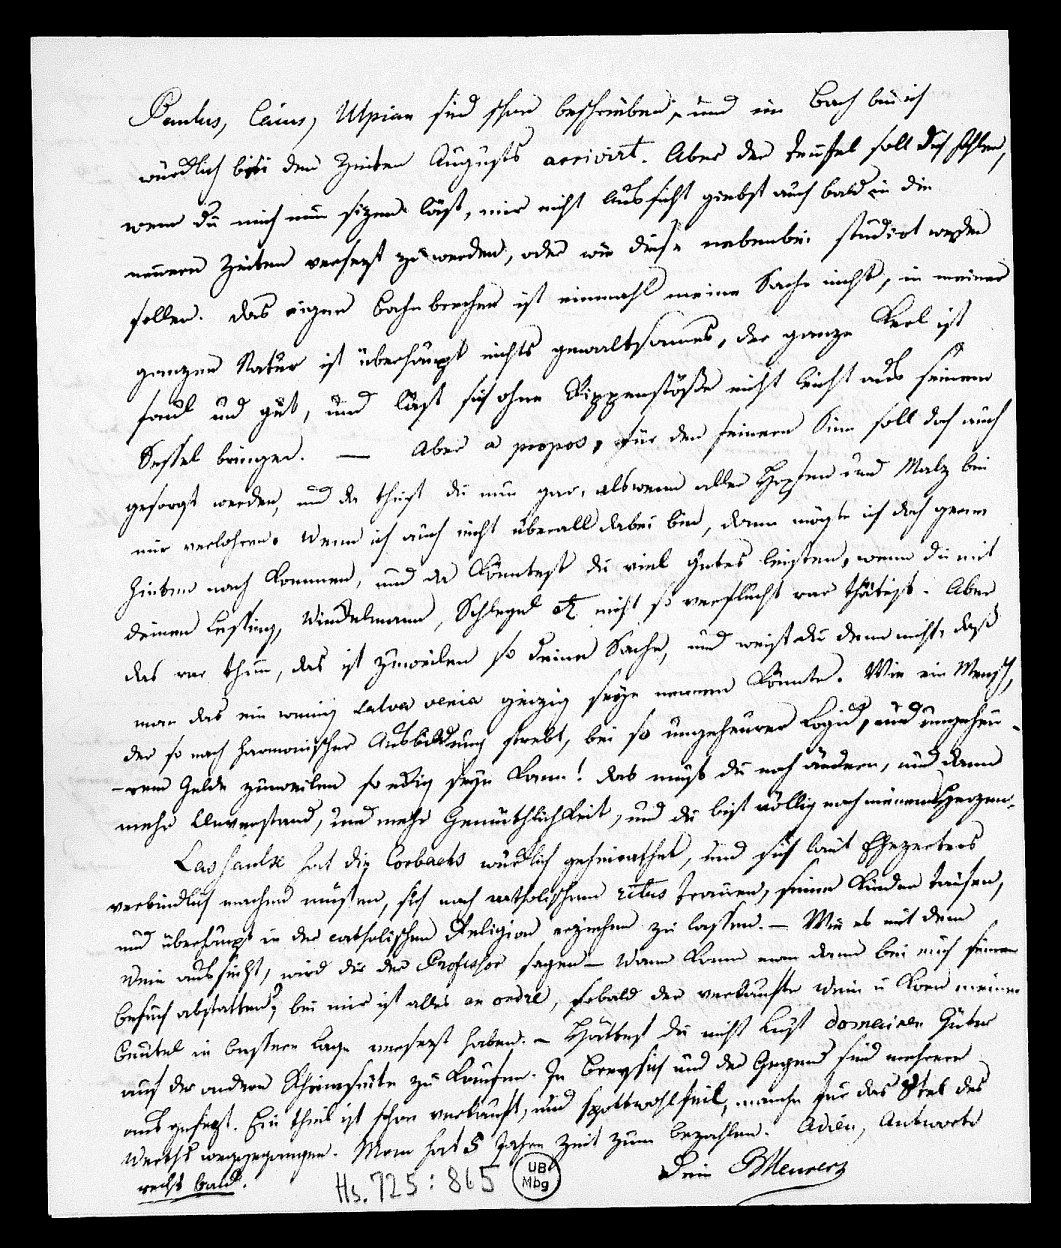 Paulus, Caius, Ulpian sind schon beschrieben, und im Bach bin ich
würdlich bis den Zeiten Augusts arrivirt. Aber der Teufel soll dich hohlen,
wenn du mich nun sizen läst, mir nicht Aussicht giebst auch bald in die
neuern Zeiten versezt zu werden, oder wie diese nebenbei studirt werden
sollen. Das eigne Bahnbrechen ist einmahl meine Sache nicht, in meiner
ganzen Natur ist überhaupt nichts gewaltsames, der ganze Kerl ist
faul und gut, und läst sich ohne Rippenstöße nicht leicht aus seinem
Sessel bringen. — Aber a propos, für den feinern Sinn soll doch auch
gesorgt werden, und da thust du nun gar, als wenn aller Hopfen und Malz bei
mir verlohren. Wenn ich auch nicht überall dabei bin, dann mögte ich doch gerne
hinten nach kommen, und da könntest du viel Gutes leisten, wenn du mit
deinem Lessing, Winckelmann, Schlegel etc nicht so verflucht rar thätest. Aber
das rar thun, das ist zuweilen so deine Sache, und weist du denn nicht, daß
man das ein wenig salva venia geizig seyn nennen könnte. Wie ein Mensch,
der so nach harmonischer Ausbildung strebt, bei so ungeheurer Logick, und ungeheu-
-rem Gelde zuweilen so eckig seyn kann! das must du noch ändern, und dann
mehr Unverstand, und mehr Gemüthlichkeit, und du bist völlig nach meinem Herzen.
Lassaulx hat die Corbachs würdlich geheirathet, und sich laut Ehezerters
verbindlich machen müssen, sich nach catholischem ritus trauen, seine Kinder taufen,
und überhaupt in der catholischen Religion erziehen zu lassen. — Wie es mit dem
Wein aussieht, wird dir der Professor sagen — Wann kann man denn bei euch seinen
Besuch abstatten? bei mir ist alles en ordre, sobald der verkaufte Wein u Korn meinen
Beutel in bessere Lage versezt haben. — Hättest du nicht Lust Domainen Güter
auf der andern Rheinseite zu kaufen. In und der Gegend sind mehrere
ausgesezt. Ein Theil ist schon verkauft, und spottwohlfeil, manche für das tel des
Werths weggegangen. Man hat 5 Jahre Zeit zum bezahlen. Adieu, Antworte
recht bald.
Dein
Hs. 725: 865
UB
Mbg